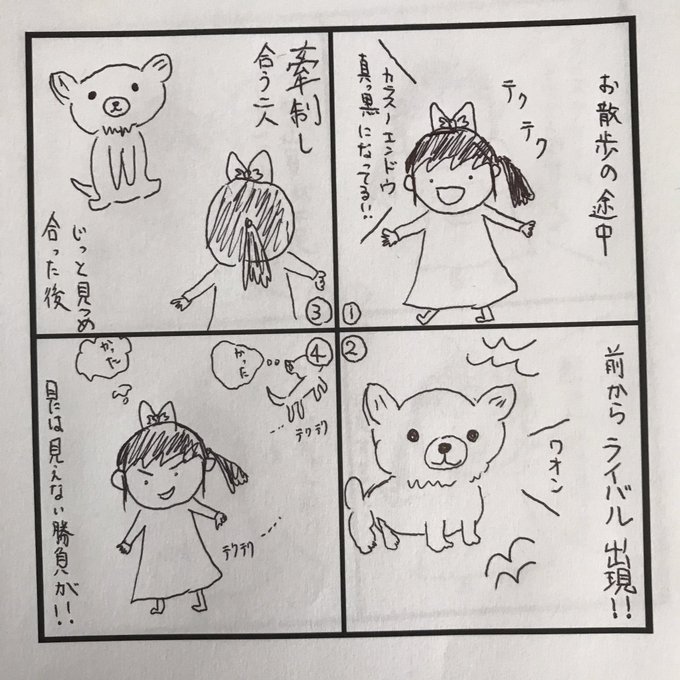 お散歩の途中
テクテク
カラスノエンドウ
真っ黒になってる!!
①
②
前からライバル出現!!
ワオン
牽制し
合う二人
じっと見つめ
合った後
③
④
かった
テクテク
かった
テクテク
目には見えない勝負が!!